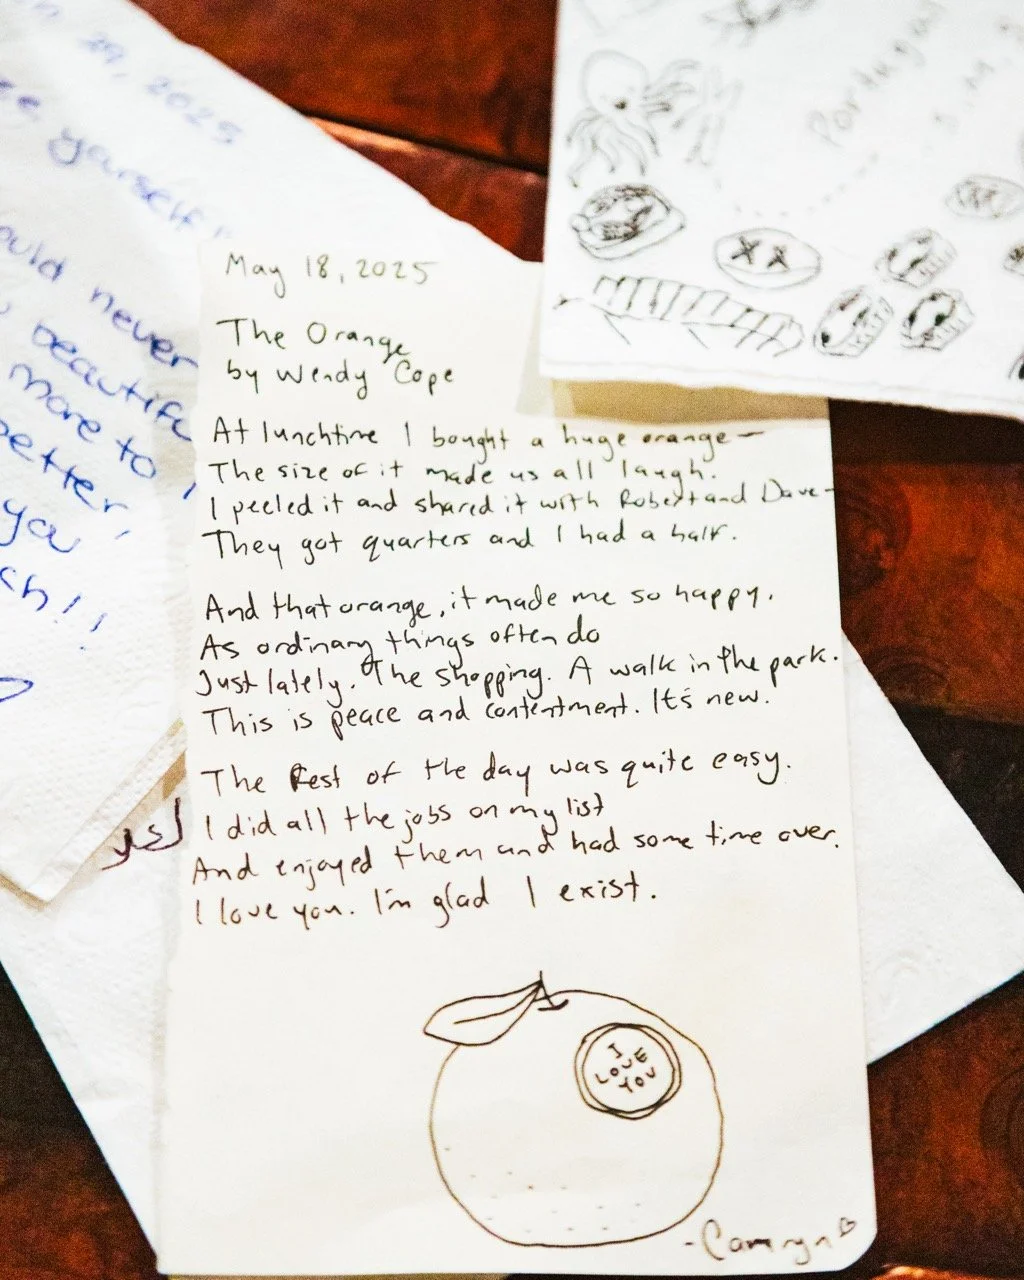 29, 2025
yourself
never
more to
better,
you
May 18, 2025
The Orange
by Wendy Cope
At lunchtime I bought a huge orange—
The size of it made us all laugh.
I peeled it and shared it with Robert and Dave—
They got quarters and I had a half.
And that orange, it made me so happy.
As ordinary things often do
Just lately. The shopping. A walk in the park.
This is peace and contentment. It's new.
The Rest of the day was quite easy.
I did all the jobs on my list
And enjoyed them and had some time over.
I love you. I'm glad I exist.
I
LOVE
YOU
-Camryn♡
Portugal